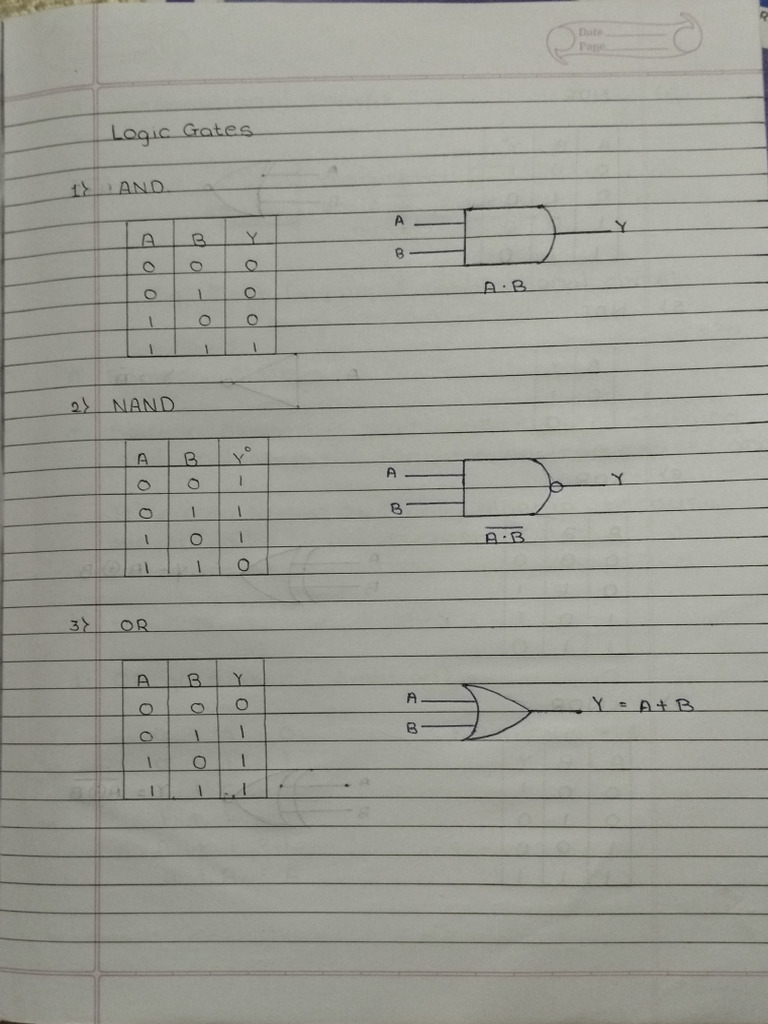 Date
Page
Logic Gates
1} AND
A B Y
0 0 0
0 1 0
1 0 0
1 1 1
A
B
Y
A·B
2} NAND
A B Y°
0 0 1
0 1 1
1 0 1
1 1 0
A
B
Y
A̅·̅B̅
3} OR
A B Y
0 0 0
0 1 1
1 0 1
1 1 1
A
B
Y = A+B